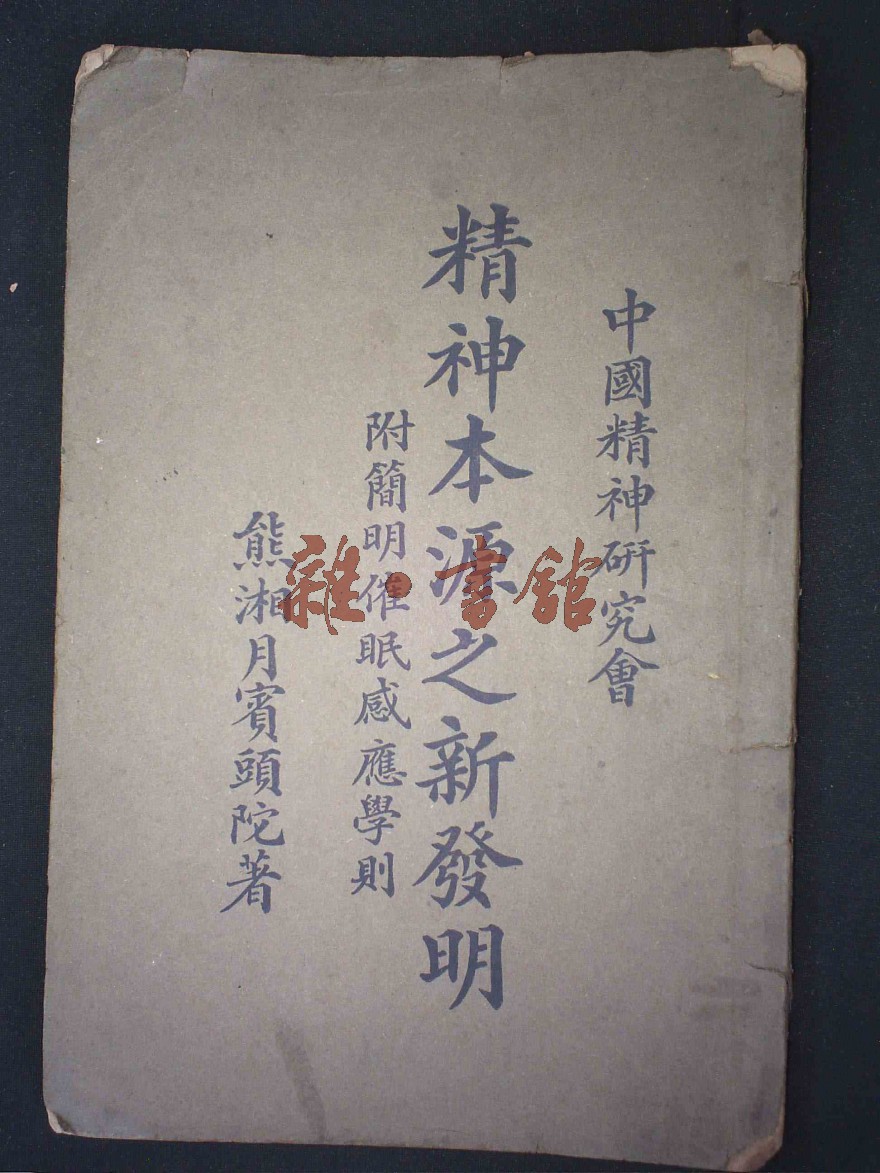 中國精神研究會
精神本源之新發明
附簡明催眠感應學則
熊湘月賓頭陀著
雜·書館